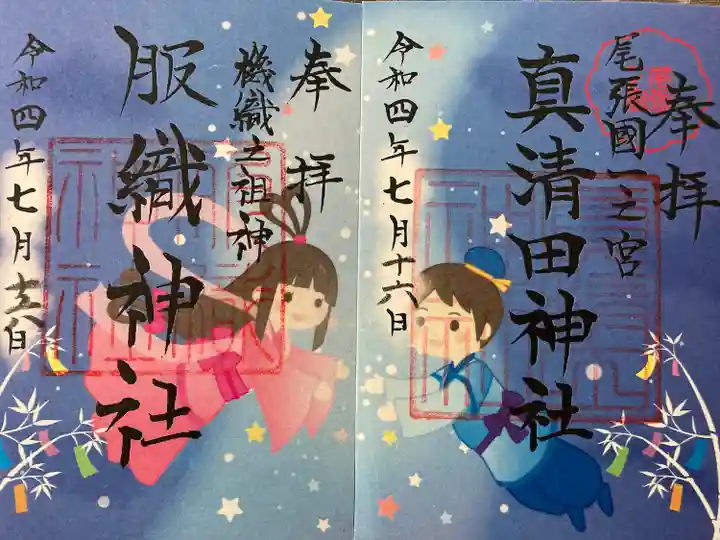 奉拝
尾張國一之宮
真清田神社
令和四年七月十六日
奉拝
機織之祖神
服織神社
令和四年七月十六日